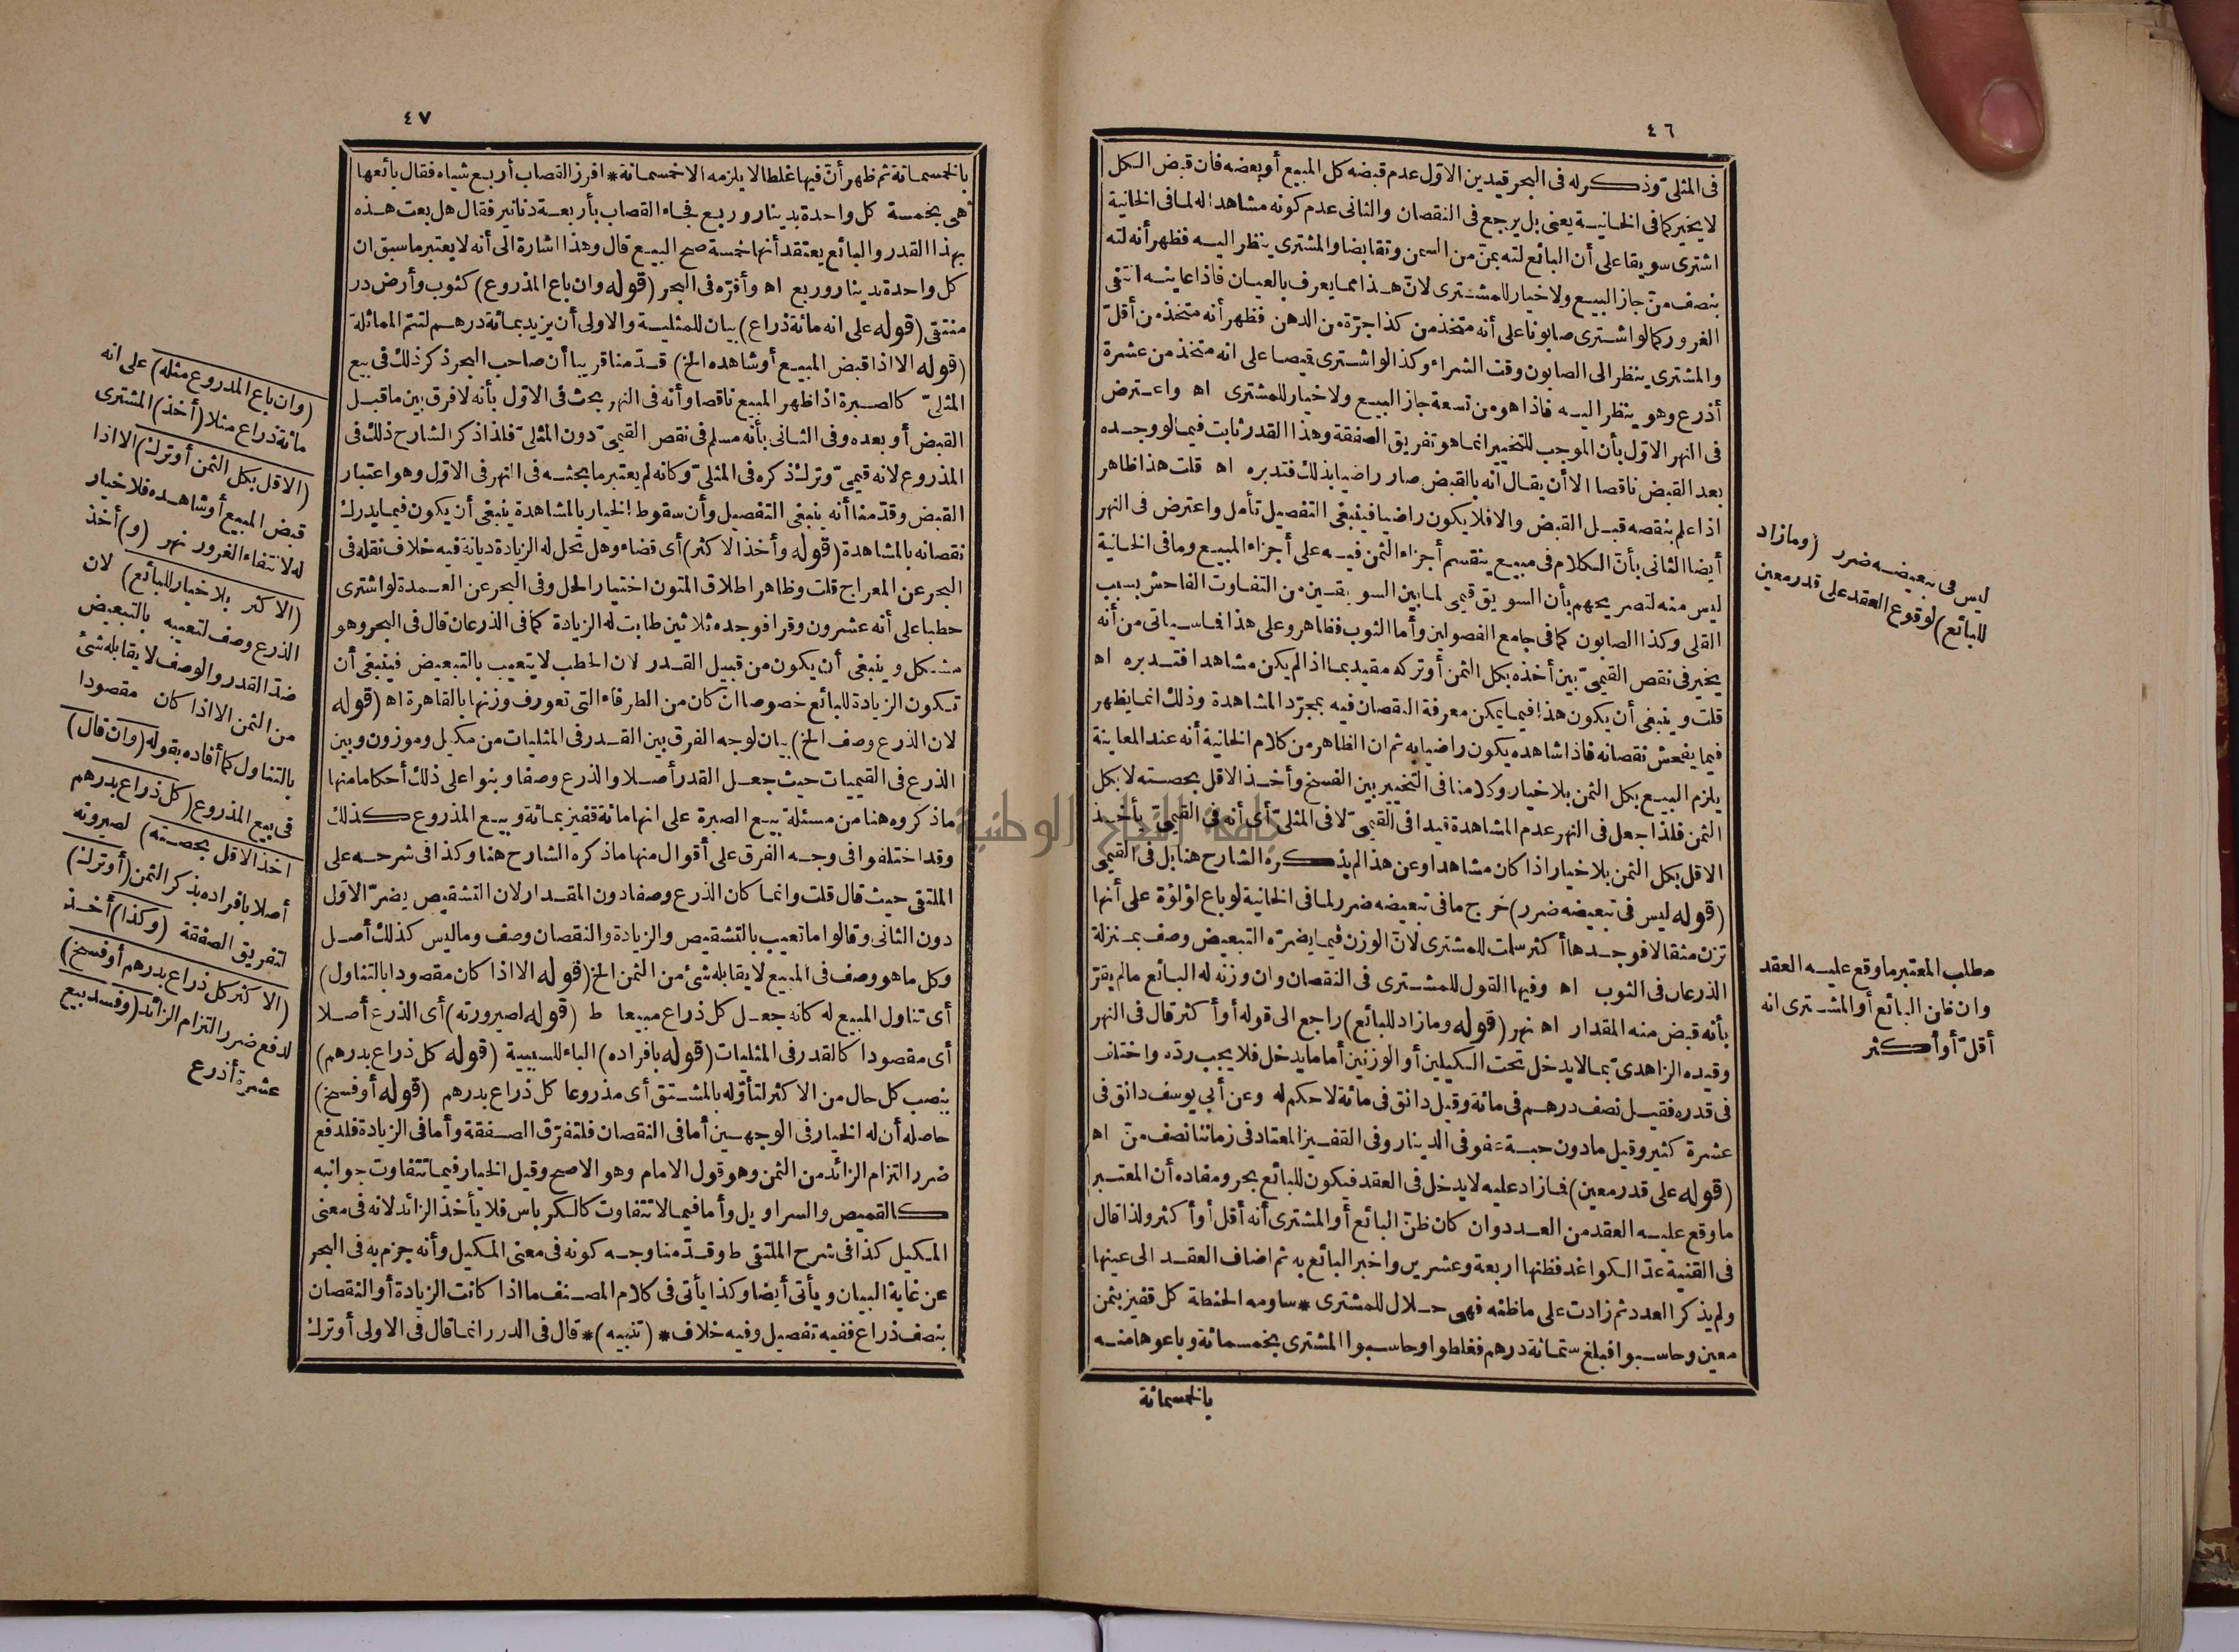 ٤٦
فى المثلىّ وذكر له فى البحر قيدين الاوّل عدم قبضه كل المبيع أو بعضه فان قبض الكل
لا يخير كما فى الخانية يعنى بل يرجع فى النقصان والثانى عدم كونه مشاهدا له لما فى الخانية
اشترى سويقا على أن البائع لته بمنّ من السمن وتقابضا والمشترى ينظر اليه فظهر أنه لته
بنصف منّ جاز البيع ولا خيار للمشترى لانّ هذا مما يعرف بالعيان فاذا عاينه انتفى
الغرور كما لو اشترى صابونا على أنه متخذ من كذا جرّة من الدهن فظهر أنه متخذ من أقلّ
والمشترى ينظر الى الصابون وقت الشراء وكذا لو اشترى قميصا على انه متخذ من عشرة
أذرع وهو ينظر اليه فاذا هو من تسعة جاز البيع ولا خيار للمشترى اه واعترض
فى النهر الاوّل بأن الموجب للتخيير انما هو تفريق الصفقة وهذا القدر ثابت فيما لو وجده
بعد القبض ناقصا الا أن يقال انه بالقبض صار راضيا بذلك فتدبره اه قلت هذا ظاهر
اذا علم بنقصه قبل القبض والا فلا يكون راضيا فينبغى التفصيل تأمل واعترض فى النهر
أيضا الثانى بأنّ الكلام فى مبيع ينقسم أجزاء الثمن فيه على أجزاء المبيع وما فى الخانية
ليس منه لتصريحهم بأن السويق قيمى لما بين السويقين من التفاوت الفاحش بسبب
القلى وكذا الصابون كما فى جامع الفصولين وأما الثوب فظاهر وعلى هذا فما سيأتى من أنه
يخير فى نقص القيمىّ بين أخذه بكل الثمن أو تركه مقيد بما اذا لم يكن مشاهدا فتدبره اه
قلت وينبغى أن يكون هذا فيما يمكن معرفة النقصان فيه بمجرّد المشاهدة وذلك انما يظهر
فيما يفحش نقصانه فاذا شاهده يكون راضيا به ثم ان الظاهر من كلام الخانية أنه عند المعاينة
يلزم البيع بكل الثمن بلا خيار وكلامنا فى التخيير بين الفسخ وأخذ الاقل بحصته لا بكل
الثمن فلذا جعل فى النهر عدم المشاهدة قيدا فى القيمىّ لا فى المثلىّ أى أنه فى القيمىّ يأخذ
الاقل بكل الثمن بلا خيار اذا كان مشاهدا وعن هذا لم يذكره الشارح هنا بل فى القيمى
(قوله ليس فى تبعيضه ضرر) خرج ما فى تبعيضه ضرر لما فى الخانية لو باع لؤلؤة على أنها
تزن مثقالا فوجدها أكثر سلمت للمشترى لانّ الوزن فيما يضرّه التبعيض وصف بمنزلة
الذرعان فى الثوب اه وفيها القول للمشترى فى النقصان وان وزنه له البائع مالم يقرّ
بأنه قبض منه المقدار اه نهر (قوله وما زاد للبائع) راجع الى قوله أو أكثر قال فى النهر
وقيده الزاهدىّ بما لا يدخل تحت الكيلين أو الوزنين أما ما يدخل فلا يجب ردّه واختلف
فى قدره فقيل نصف درهم فى مائة وقيل دانق فى مائة لا حكم له وعن أبى يوسف دانق فى
عشرة كثير وقيل ما دون حبة عفو فى الدينار وفى القفيز المعتاد فى زماننا نصف منّ اه
(قوله على قدر معين) فما زاد عليه لا يدخل فى العقد فيكون للبائع بحر ومفاده أن المعتبر
ما وقع عليه العقد من العدد وان كان ظنّ البائع أو المشترى أنه أقل أو أكثر ولذا قال
فى القنية عدّ الكواغد فظنها اربعة وعشرين واخبر البائع به ثم اضاف العقد الى عينها
ولم يذكر العدد ثم زادت على ما ظنه فهى حلال للمشترى * ساومه الحنطة كل قفيز بثمن
معين وحاسبوا فبلغ ستمائة درهم فغلطوا وحاسبوا المشترى بخمسمائة وباعوها منه
بالخمسمائة
ليس فى تبعيضه ضرر (وما زاد
للبائع) لوقوع العقد على قدر معين
مطلب المعتبر ما وقع عليه العقد
وان ظن البائع أو المشترى انه
أقلّ أو أكثر
٤٧
بالخمسمائة ثم ظهر أنّ فيها غلطا لا يلزمه الا خمسمائة * افرز القصاب أربع شياه فقال بائعها
هى بخمسة كل واحدة بدينار وربع فجاء القصاب بأربعة دنانير فقال هل بعت هذه
بهذا القدر والبائع يعتقد أنها خمسة صح البيع قال وهذا اشارة الى أنه لا يعتبر ما سبق ان
كل واحدة بدينار وربع اه وأقرّه فى البحر (قوله وان باع المذروع) كثوب وأرض در
منتقى (قوله على انه مائة ذراع) بيان للمثلية والاولى أن يزيد بمائة درهم لتتم المماثلة
(قوله الا اذا قبض المبيع أو شاهده الخ) قدّمنا قريبا أن صاحب البحر ذكر ذلك فى بيع
المثلىّ كالصبرة اذا ظهر المبيع ناقصا وأنه فى النهر بحث فى الاوّل بأنه لا فرق بين ما قبل
القبض أو بعده وفى الثانى بأنه مسلم فى نقص القيمىّ دون المثلىّ فلذا ذكر الشارح ذلك فى
المذروع لانه قيمىّ وترك ذكره فى المثلىّ وكأنه لم يعتبر ما بحثه فى النهر فى الاوّل وهو اعتبار
القبض وقدّمنا أنه ينبغى التفصيل وأن سقوط الخيار بالمشاهدة ينبغى أن يكون فيما يدرك
نقصانه بالمشاهدة (قوله وأخذ الاكثر) أى قضاء وهل تحل له الزيادة ديانة فيه خلاف نقله فى
البحر عن المعراج قلت وظاهر اطلاق المتون اختيار الحل وفى البحر عن العمدة لو اشترى
حطبا على أنه عشرون وقرا فوجده ثلاثين طابت له الزيادة كما فى الذرعان قال فى البحر وهو
مشكل وينبغى أن يكون من قبيل القدر لان الحطب لا يتعيب بالتبعيض فينبغى أن
تكون الزيادة للبائع خصوصا ان كان من الطرفاء التى تعورف وزنها بالقاهرة اه (قوله
لان الذرع وصف الخ) بيان لوجه الفرق بين القدر فى المثليات من مكيل وموزون وبين
الذرع فى القيميات حيث جعل القدر أصلا والذرع وصفا وبنوا على ذلك أحكاما منها
ما ذكروه هنا من مسئلة بيع الصبرة على انها مائة قفيز بمائة وبيع المذروع كذلك
وقد اختلفوا فى وجه الفرق على أقوال منها ما ذكره الشارح هنا وكذا فى شرحه على
الملتقى حيث قال قلت وانما كان الذرع وصفا دون المقدار لان التشقيص يضرّ الاوّل
دون الثانى وقالوا ما تعيب بالتشقيص والزيادة والنقصان وصف وما ليس كذلك أصل
وكل ما هو وصف فى المبيع لا يقابله شئ من الثمن الخ (قوله الا اذا كان مقصودا بالتناول)
أى تناول المبيع له كأنه جعل كل ذراع مبيعا ط (قوله لصيرورته) أى الذرع أصلا
أى مقصودا كالقدر فى المثليات (قوله بافراده) الباء للسببية (قوله كل ذراع بدرهم)
بنصب كل حال من الاكثر لتأوّله بالمشتق أى مذروعا كل ذراع بدرهم (قوله أو فسخ)
حاصله أن له الخيار فى الوجهين أما فى النقصان فلتفرّق الصفقة وأما فى الزيادة فلدفع
ضرر التزام الزائد من الثمن وهو قول الامام وهو الاصح وقيل الخيار فيما تتفاوت جوانبه
كالقميص والسراويل وأما فيما لا تتفاوت كالكرباس فلا يأخذ الزائد لانه فى معنى
المكيل كذا فى شرح الملتقى ط وقدّمنا وجه كونه فى معنى المكيل وأنه جزم به فى البحر
عن غاية البيان ويأتى أيضا وكذا يأتى فى كلام المصنف ما اذا كانت الزيادة أو النقصان
بنصف ذراع ففيه تفصيل وفيه خلاف * (تنبيه) * قال فى الدرر انما قال فى الاولى أو ترك
(وان باع المذروع مثله) على انه
مائة ذراع مثلا (أخذ) المشترى
(الاقل بكل الثمن أو ترك) الا اذا
قبض المبيع أو شاهده فلا خيار
له لانتفاء الغرور نهر (و) أخذ
(الاكثر بلا خيار للبائع) لان
الذرع وصف لتعيبه بالتبعيض
ضدّ القدر والوصف لا يقابله شئ
من الثمن الا اذا كان مقصودا
بالتناول كما أفاده بقوله (وان قال)
فى بيع المذروع (كل ذراع بدرهم
اخذ الاقل بحصته) لصيرورته
أصلا بافراده بذكر الثمن (أو ترك)
لتفريق الصفقة (وكذا) أخذ
(الاكثر كل ذراع بدرهم أو فسخ)
لدفع ضرر التزام الزائد (وفسد بيع
عشرة أذرع
جامعة النجاح الوطنية